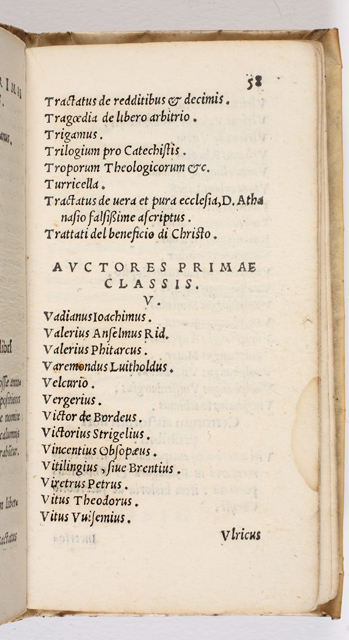 58
Tractatus de redditibus & decimis.
Tragœdia de libero arbitrio.
Trigamus.
Trilogium pro Catechistis.
Troporum Theologicorum &c.
Turricella.
Tractatus de uera et pura ecclesia, D. Atha
nasio falsißime ascriptus.
Trattati del beneficio di Christo.
AVCTORES PRIMAE
CLASSIS.
V.
Vadianus Ioachimus.
Valerius Anselmus Rid.
Valerius Phitarcus.
Varemondus Luitholdus.
Velcurio.
Vergerius.
Victor de Bordeus.
Victorius Strigelius.
Vincentius Obsopæus.
Vitilingius, siue Brentius.
Viretrus Petrus.
Vitus Theodorus.
Vitus Vuisemius.
Vlricus